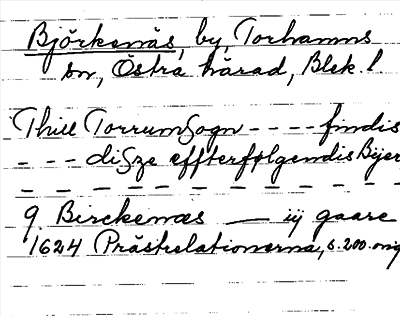 Björkenäs, by, Torhamns
sn, Östra härad, Blek. l.
Thill Torrumsogn - - - - findis
- - - disze effterfølgendis Bÿer
- - - - - - - - - - - -
9. Birckenæs — iij gaare
1624 Prästrelationerna, s. 200. orig